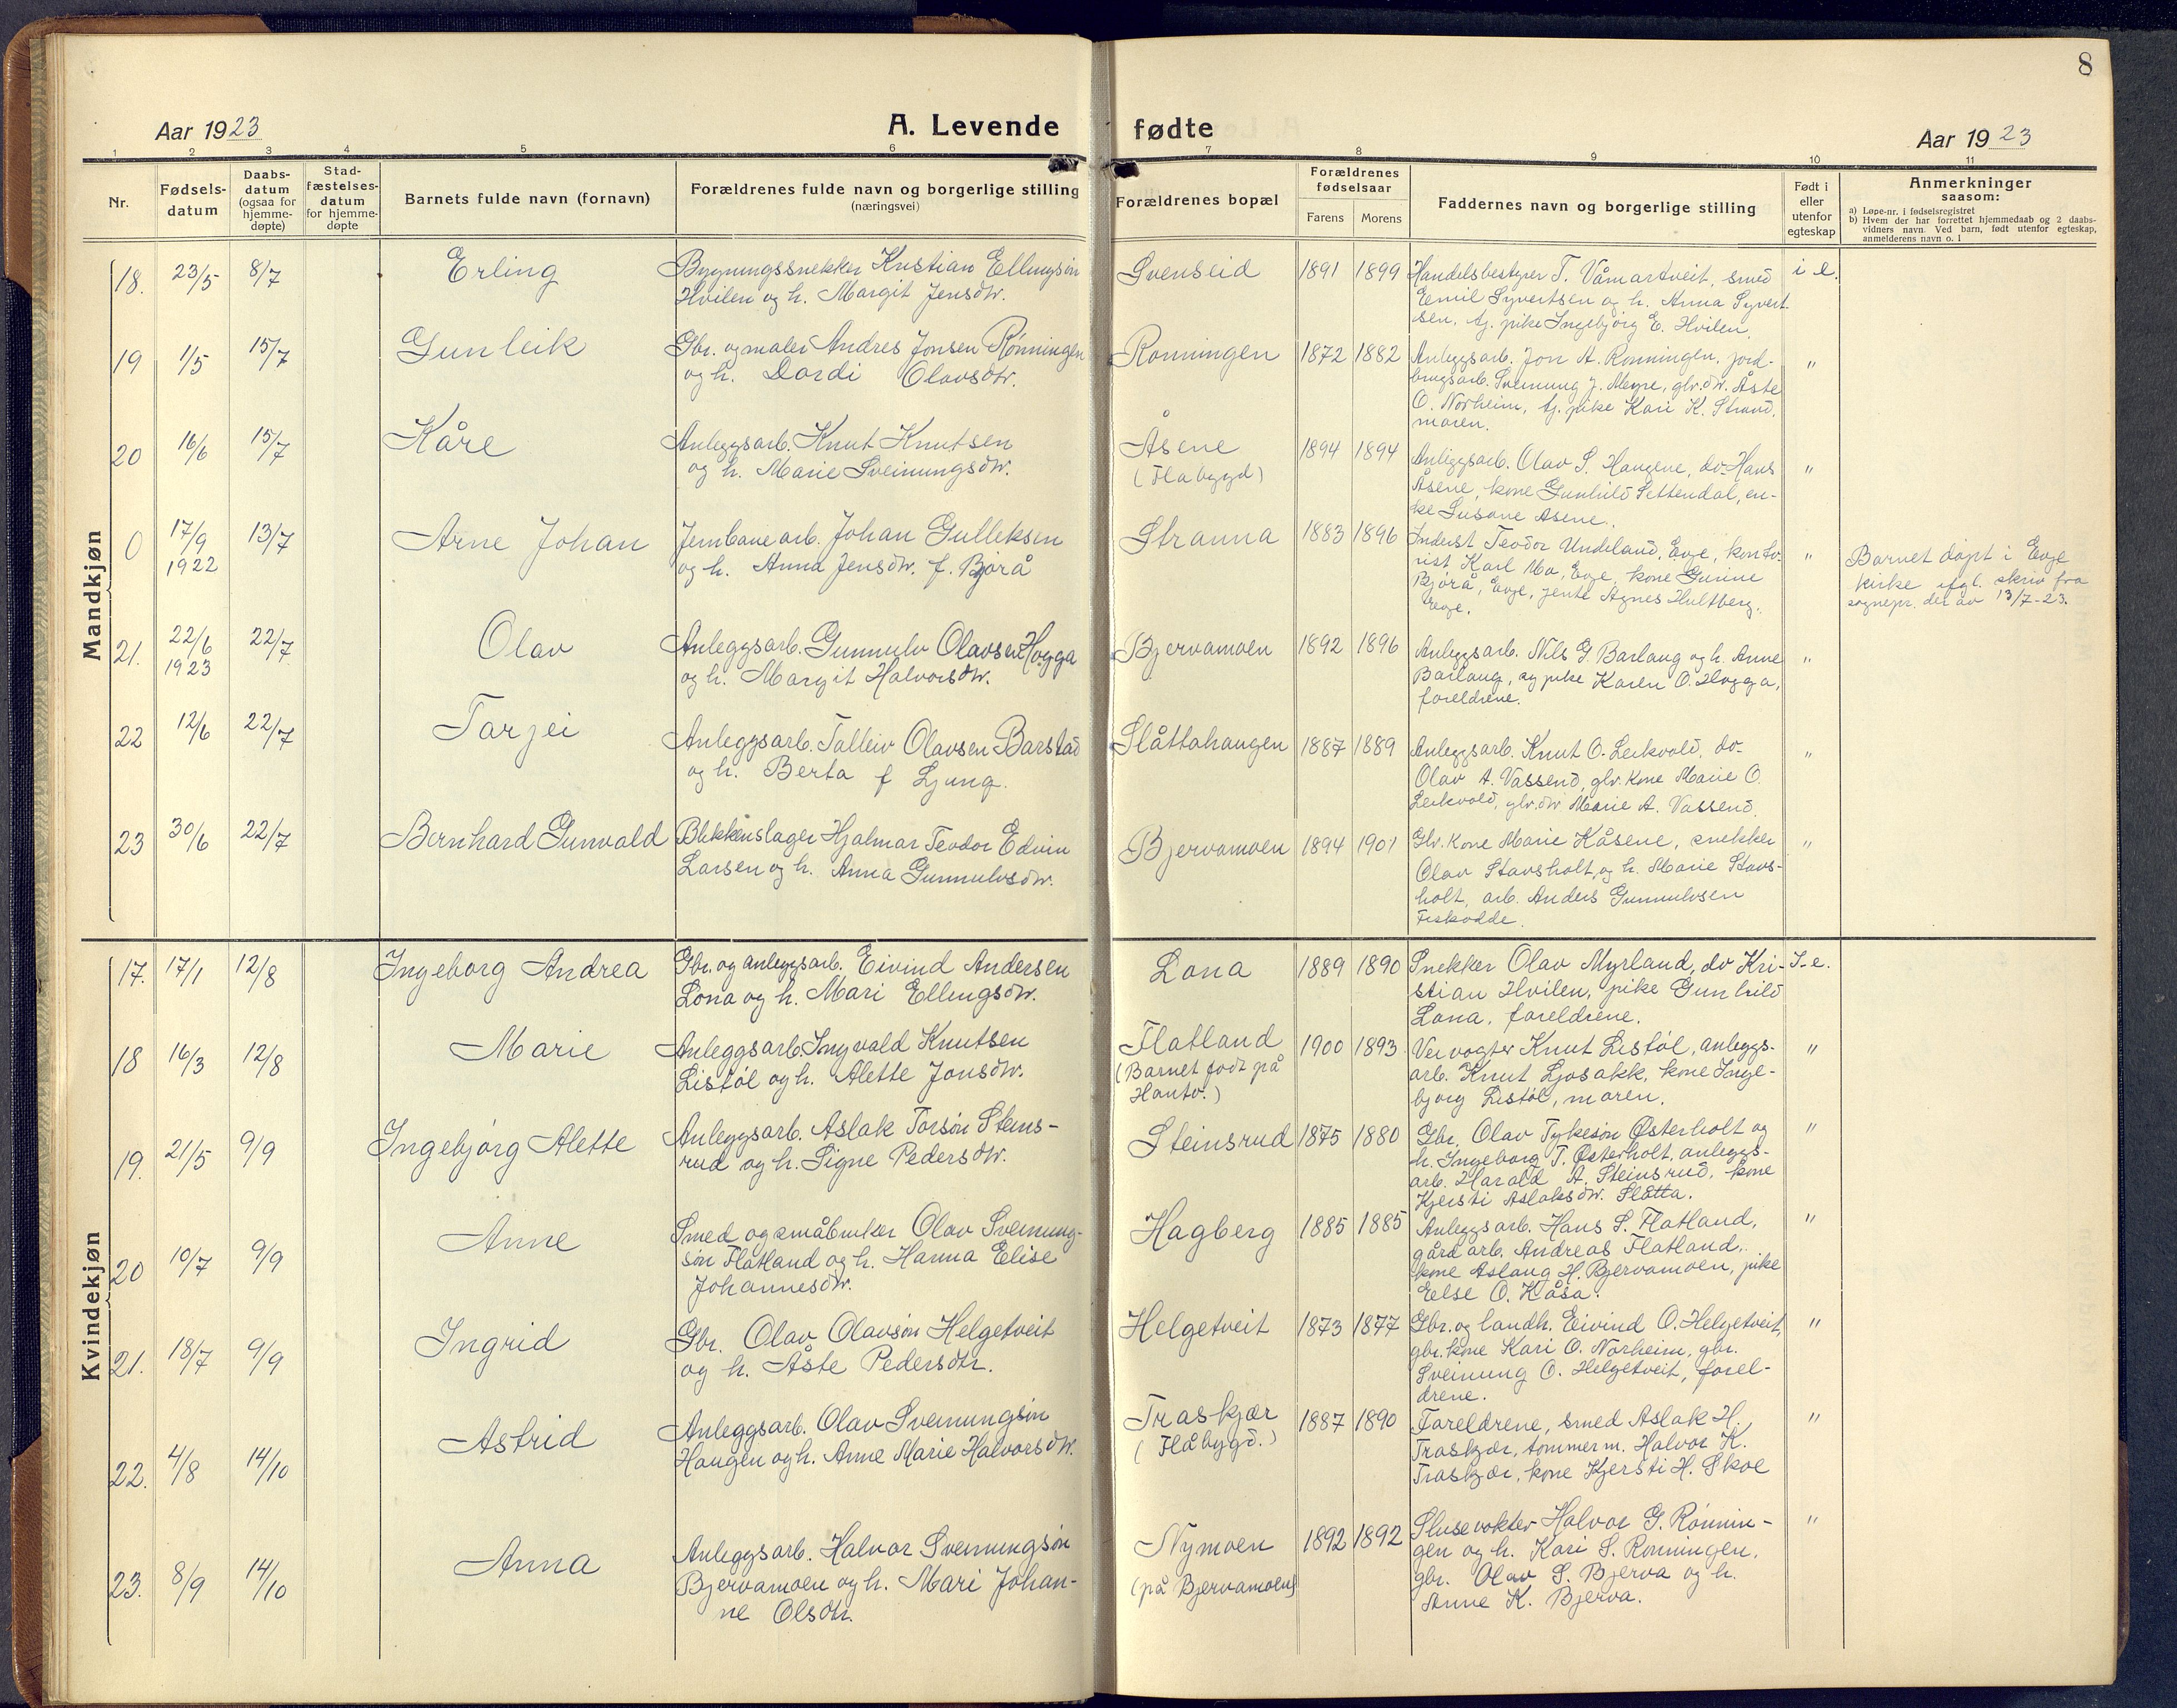 8
Aar 1923
A. Levende fødte
Aar 1923
1 2 3 4 5 6 7 8 9 10 11
Nr.
Fødsels-
datum
Daabs-
datum
(ogsaa for
hjemme-
døpte)
Stad-
fæstelses-
datum
for hjemme-
døpte
Barnets fulde navn (fornavn)
Forældrenes fulde navn og borgerlige stilling
(næringsvei)
Forældrenes bopæl
Forældrenes
fødselsaar
Farens Morens
Faddernes navn og borgerlige stilling
Født i
eller
utenfor
egteskap
Anmerkninger
saasom:
a) Løpe-nr. i fødselsregistret
b) Hvem der har forrettet hjemmedaab og 2 daabs-
vidners navn. Ved barn, født utenfor egteskap,
anmelderens navn o. l
Mandkjøn
18. 23/5 8/7 Erling
Bygningssnekker Kristian Ellingsøn
Hvilen og h. Margit Jensdtr.
Svenseid 1891 1899
Handelsbestyrer T. Våmartveit, smed
Emil Syvertsen og h. Anna Syvert-
sen, tj. pike Ingebjørg E. Hvilen.
i e.
19 1/5 15/7 Gunleik
Gbr. og maler Andres Jonsen Rønningen
og h. Dordi Olavsdtr.
Rønningen 1872 1882
Anleggsarb. Jon A. Rønningen, jord-
brugsarb. Sveinung J. Meyre, gbr.dtr. Åste
O. Norheim, tj. pike Kari K. Strand,
moren.
"
20 16/6 15/7 Kåre
Anleggsarb. Knut Knutsen
og h. Marie Sveinungsdtr.
Åsene
(Flabygd)
1894 1894
Anleggsarb. Olav S. Haugene, do Hans
Åsene, kone Gunhild Settendal, en-
ke Susane Åsene.
"
0 17/9 1922 13/7 Arne Johan
Jernbanearb. Johan Gulleksen
og h. Anna Jensdtr. f. Bjørå
Stranna 1883 1896
Inderst Teodor Undeland, Evje, konto-
rist Karl Mo, Evje, kone Gurine
Bjørå, Evje, jente Agnes Hultberg,
Evje.
"
Barnet døpt i Evje
kirke ifgl. skriv fra
sognepr. der av 13/7-23.
21. 22/6 1923 22/7 Olav
Anleggsarb. Gunnulv Olavsen Hogga
og h. Margit Halvorsdtr.
Bjervamoen 1892 1896
Anleggsarb. Nils G. Barlaug og h. Anne
Barlaug, og pike Karen O. Hogga,
foreldrene.
"
22 12/6 22/7 Tarjei
Anleggsarb. Talleiv Olavsen Barstad
og h. Berta f Ljung.
Slåttahaugen 1887 1889
Anleggsarb. Knut O. Leikvold, do-
Olav A. Vassend, gbr. kone Marie O.
Leikvold, gbr.dtr Marie A. Vassend.
"
23 30/6 22/7 Bernhard Gunvald
Blikkenslager Hjalmar Teodor Edvin
Larsen og h. Anna Gunnulvsdtr.
Bjervamoen 1894 1901
Gbr. kone Marie Kåsene, snekker
Olav Stavsholt, og h. Marie Stavs-
holt, arb. Anders Gunnulvsen
Fiskodde.
"
Kvindekjøn
17. 17/1 12/8 Ingeborg Andrea
Gbr. og anleggsarb. Eivind Andersen
Lona og h. Mari Ellingsdtr.
Lona 1889 1890
Snekker Olav Myrland, do Kri-
stian Hvilen, pike Gunhild
Lona, foreldrene.
I e.
18 16/3 12/8 Marie
Anleggsarb. Ingvald Knutsen
Listøl og h. Alette Jonsdtr.
Flatland
(Barnet født på
Hauto.)
1900 1893
Veivogter Knut Listøl, anleggs-
arb. Knut Ljosakk, kone Inge-
bjørg Listøl, moren.
"
19. 21/5 9/9 Ingebjørg Alette
Anleggsarb. Aslak Torsøn Steins-
rud og h. Signe Pedersdtr.
Steinsrud 1875 1880
Gbr. Olav Tykesøn Østerholt og
h. Ingeborg T. Østerholt, anleggs-
arb. Harald A. Steinsrud, kone
Kjersti Aslaksdtr. Slåtta.
"
20 10/7 9/9 Anne
Smed og småbruker Olav Sveinung-
søn Flatland og h. Hanna Elise
Johannesdtr.
Hagberg 1885 1885
Anleggsarb. Hans S. Flatland,
gårdarb. Andreas Flatland,
kone Aslaug H. Bjervamoen, pike
Else O. Kåsa.
"
21. 18/7 9/9 Ingrid
Gbr. Olav Olavsøn Helgetveit
og h. Åste Pedersdtr.
Helgetveit 1873 1877
Gbr. og landh. Eivind O. Helgetveit,
gbr. kone Kari O. Norheim, gbr.
Sveinung O. Helgetveit, forel-
drene.
"
22. 4/8 14/10 Astrid
Anleggsarb. Olav Sveinungsøn
Haugen og h. Anne Marie Halvorsdtr.
Traskjær
(Flåbygd.)
1887 1890
Foreldrene, smed Aslak H.
Traskjær, tømmerm. Halvor K.
Traskjær, kone Kjersti H. Skoe
"
23. 8/9 14/10 Anna
Anleggsarb. Halvor Sveinungsøn
Bjervamoen og h. Mari Johan-
ne Olsdtr.
Nymoen
(på Bjervamoen)
1892 1892
Slusevokter Halvor G. Rønnin-
gen og h. Kari S. Rønningen,
gbr. Olav S. Bjerva og h.
Anne K. Bjerva.
"